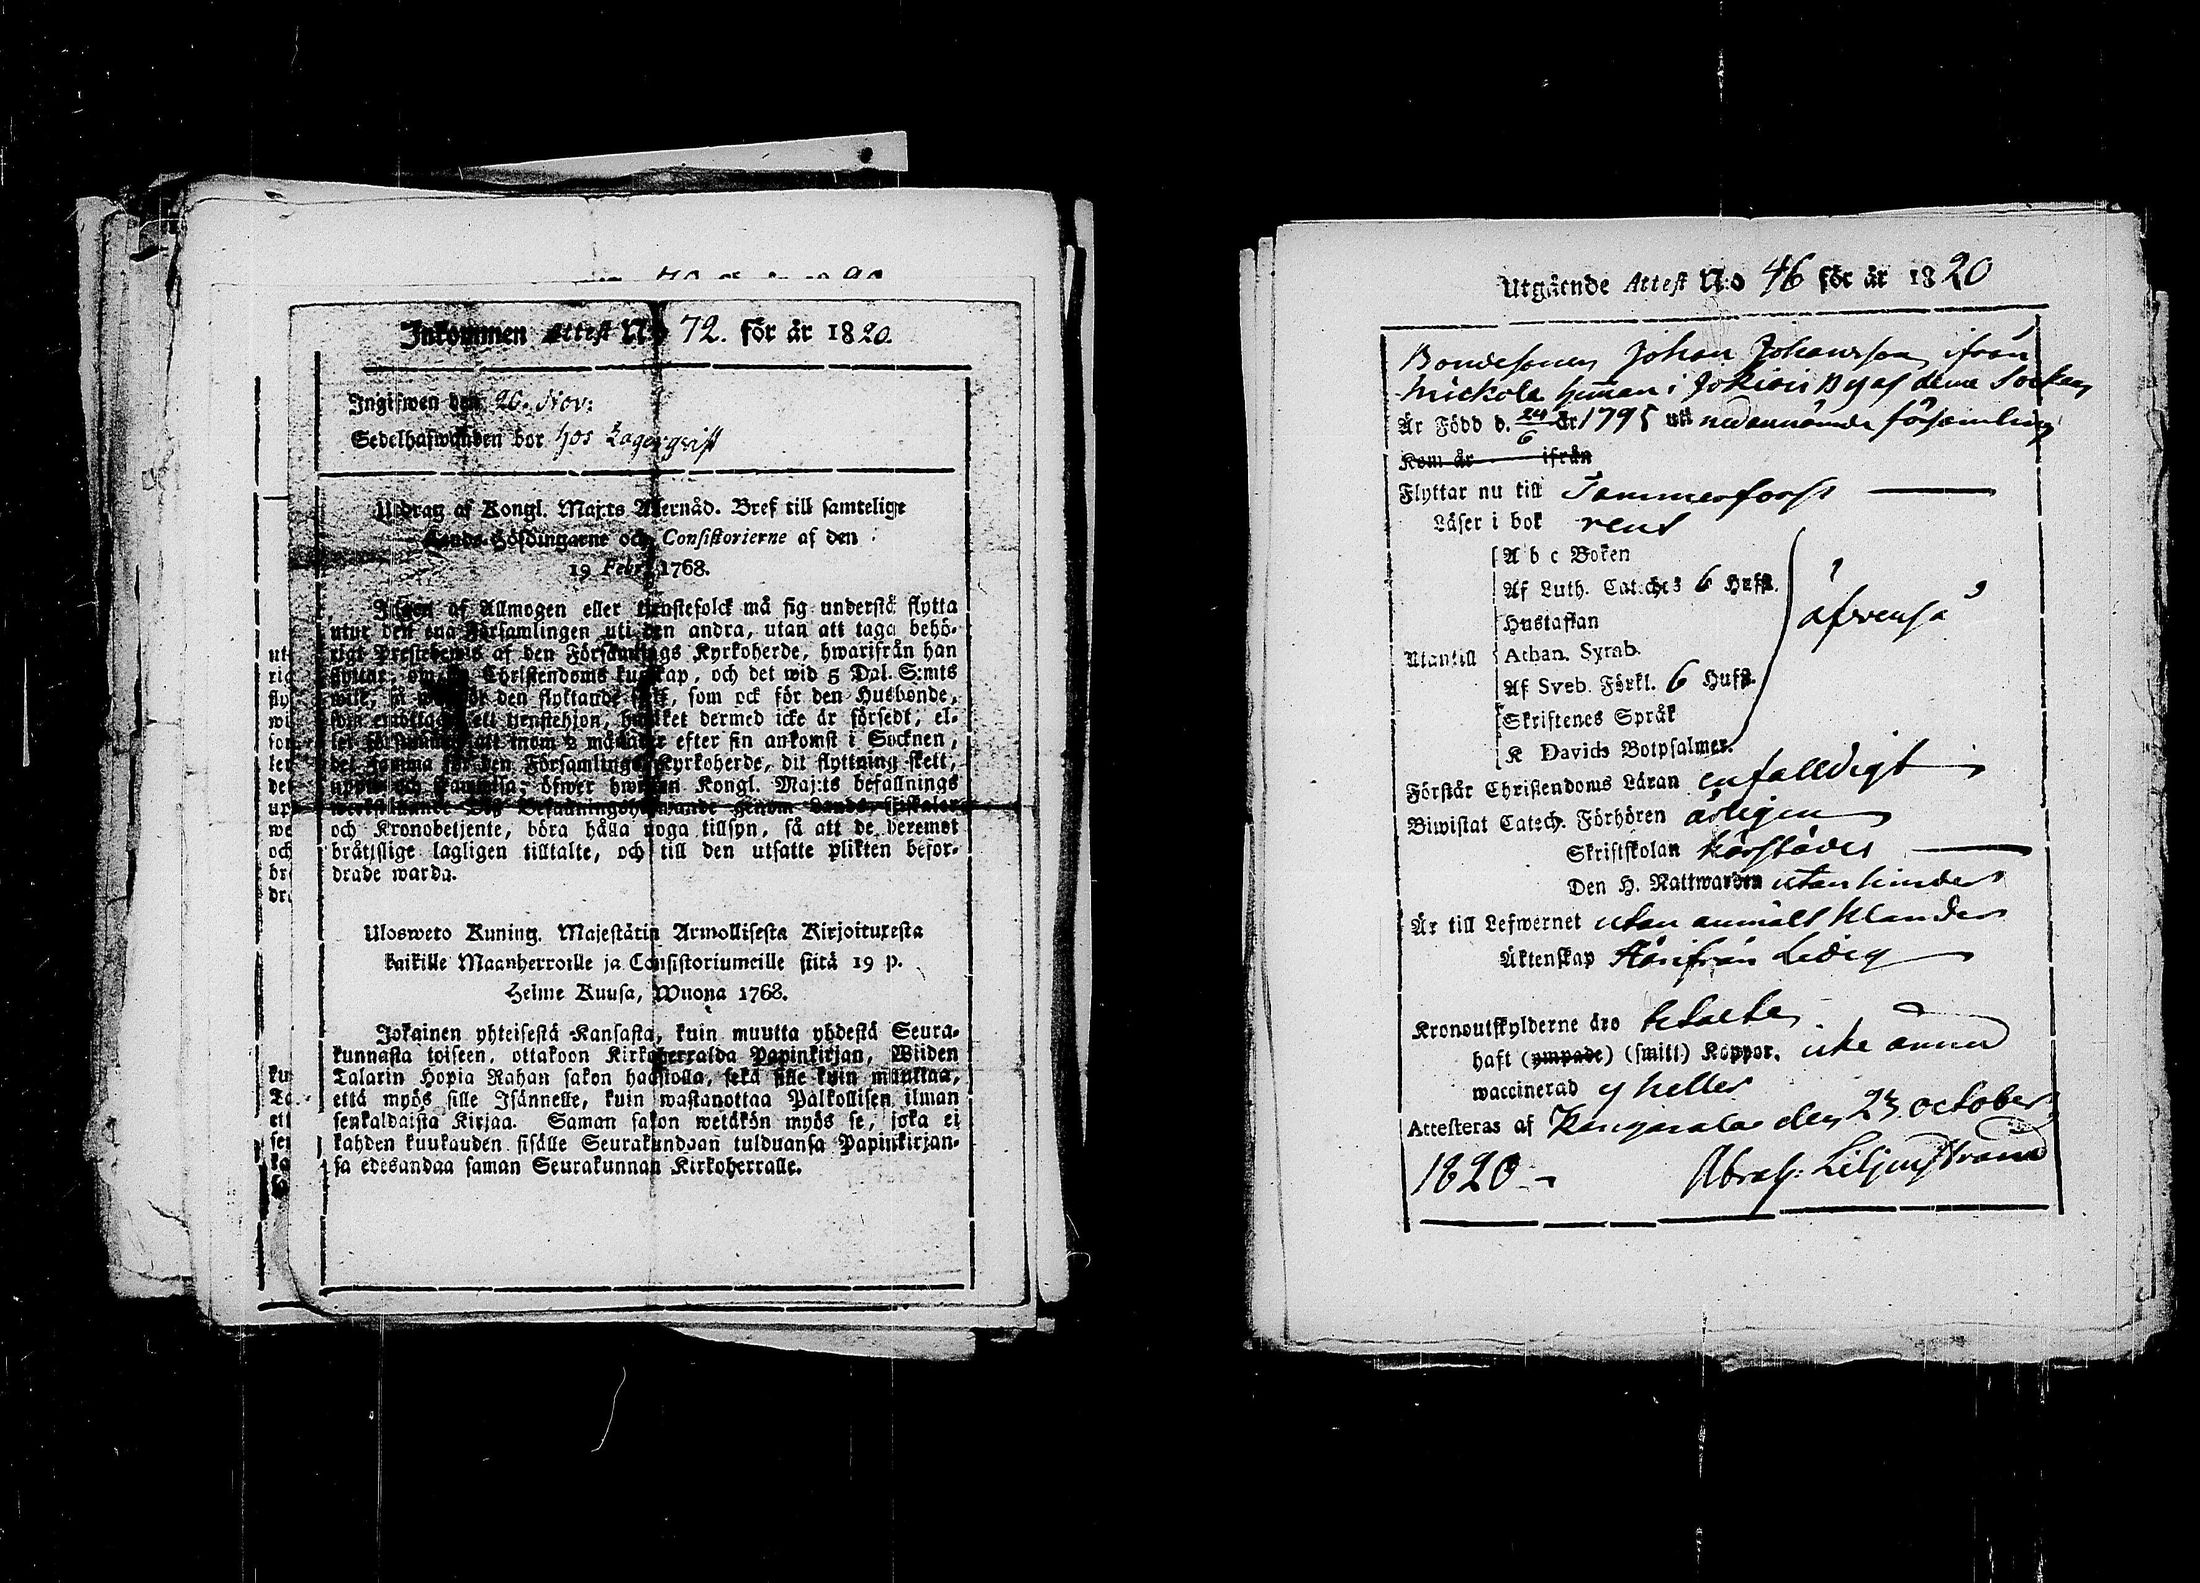 Inkommen Attest N:o 72. för år 1820.
Ingifwen den 20. Nov:
Sedelhafwanden bor hos Lagerqvist
Utdrag af Kongl. Maj:ts Allernåd. Bref till samtelige
Lands-Höfdingarne och Consistorierne af den
19 Febr. 1768.
Ingen af Allmogen eller tienstefolck må sig understå flytta
utur den ena Församlingen uti den andra, utan att taga behö-
rigt Prestebewis af den Församlings Kyrkoherde, hwarifrån han
flyttar, om sin Christendoms kunskap, och det wid 5 Dal. S:mts
wite, så wäl för den flyttande sielf, som ock för den Husbonde,
som emottager ett tienstehjon, hwilket dermed icke är försedt, el-
ler försummar att inom 2 månader efter sin ankomst i Socknen,
det samma för den Församlings Kyrkoherde, dit flyttning skett,
uppte och framwisa; öfwer hwilken Kongl. Maj:ts befallnings
werkställande Dess Befallningshafwande genom Lands-Fiskaler
och Kronobetjente, böra hålla noga tillsyn, så att de deremot
bråtzlige lagligen tilltalte, och till den utsatte plikten befor-
drade warda.
Ulosweto Kuning. Majestätin Armollisesta Kirjoituxesta
kaikille Maanherroille ja Consistoriumeille siitä 19 p.
Helme Kuusa, Wuona 1768.
Jokainen yhteisestä Kansasta, kuin muutta yhdestä Seura-
kunnasta toiseen, ottakoon Kirkoherralda Papinkirjan, Wiiden
Talarin Hopia Rahan sakon haastolla, sekä sille kuin muuttaa,
että myös sille Isännelle, kuin wastanottaa Palkollisen ilman
senkaldaista Kirjaa. Saman sakon wetäkön myös se, joka ei
kahden kuukauden sisälle Seurakundaan tulduansa Papinkirjan-
sa edesandaa saman Seurakunnan Kirkoherralle.
Utgående Attest N:o 46 för år 1820
Bondesonen Johan Johansson ifrån
Mickola heman i Jokiois By af denna Socken
Är Född d. 24/6 år 1795 uti nedannämde församling
Kom år ifrån
Flyttar nu till Tammerfors
Läser i bok rent
A b c Boken
Af Luth. Cateches 6 Hufst.
Hustaflan
Utantill Athan. Symb.
Af Sveb. Förkl. 6 Hufst.
Skriftenes Språk
K Davids Botpsalmer.
äfvenså
Förstår Christendoms Läran enfalldigt
Biwistat Catech. Förhören årligen
Skriftskolan härstädes
Den H. Nattwarden utan hinder
Är till Lefwernet utan anmält klander
Äktenskap Härifrån Ledig
Kronoutskylderne äro betalte
haft (ympade) (smitt) Koppor. icke ännu
waccinerad ej heller
Attesteras af Kangasala den 23 october
1820 - Abrah: Liljenstrand